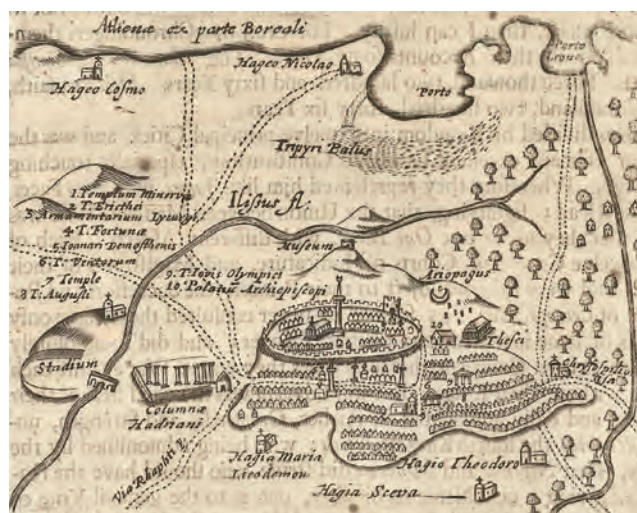 Athenæ ex parte Boreali
Porto
Leone
Hageo Cosmo
Hageo Nicolao
Porto
Tripyri Palus
1. Templum Minervæ
2 T: Ericthei
3. Armamentarium Lycurgi
4 T: Fortunæ
5 Lanari Demosthenis
6. T: Ventorum
7 Temple
8 T: Augusti
Ilisius fl.
Museum
9. T: Iovis Olympici
10. Palatiū Archiepiscopi
Ariopagus
10
Thesei
Stadium
Columnæ
Hadriani
Via Rhaphti
Hagia Maria
Hagio Theodoro
Hagia Sceva